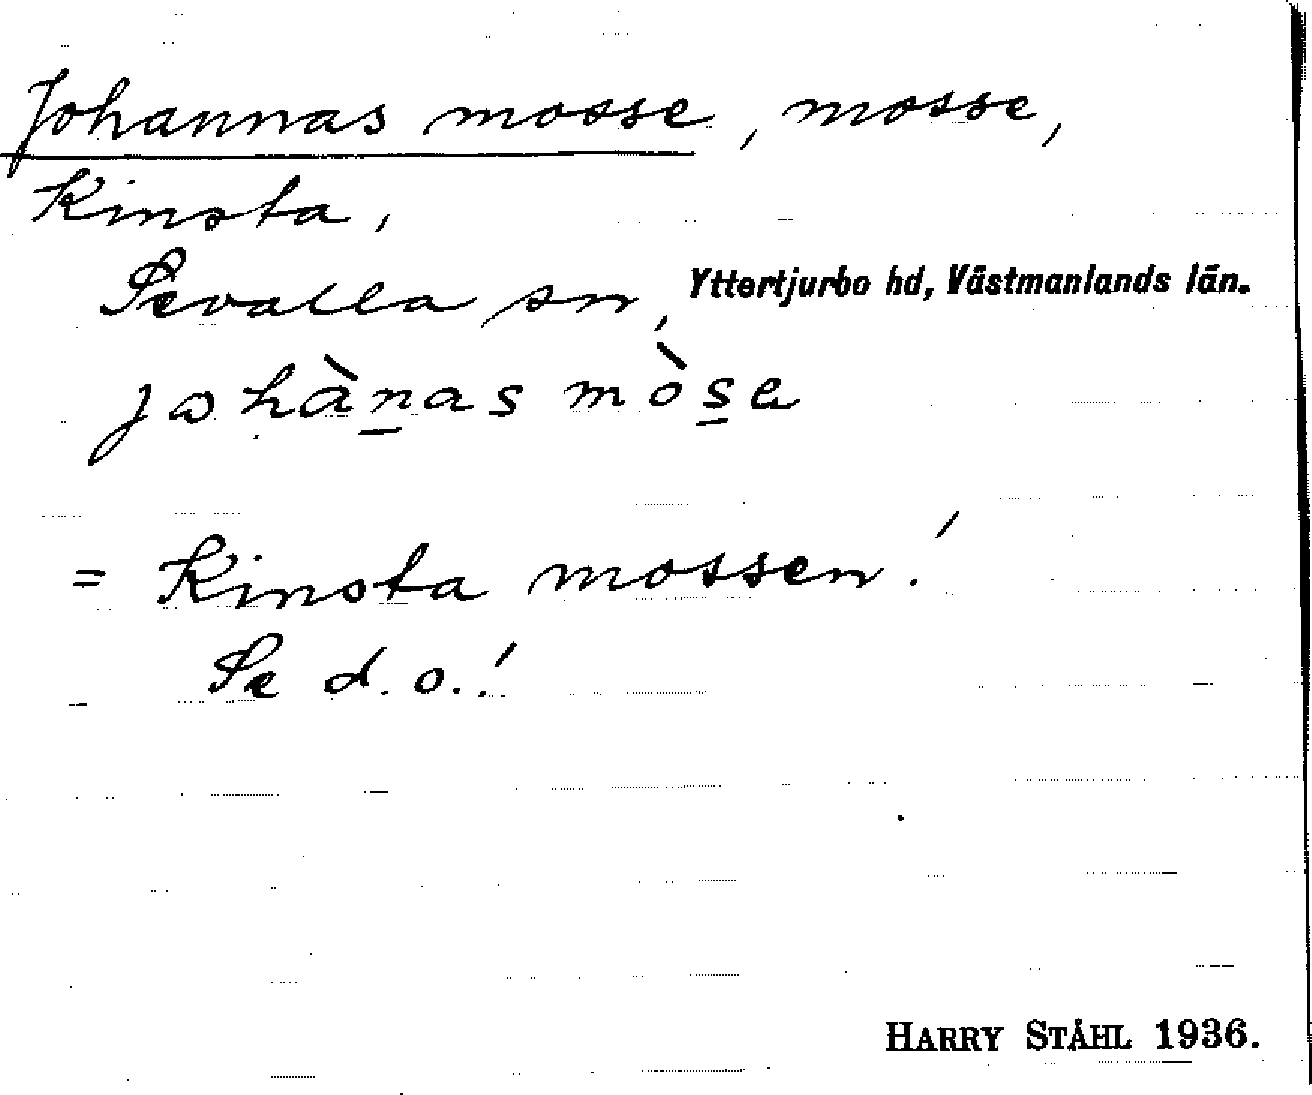 Johannas mosse, mosse,
Kinsta,
Sevalla sn, Yttertjurbo hd, Västmanlands län.
jɷhàn̲as mòs̲e
= Kinsta mossen!
Se d.o.!
HARRY STÅHL 1936.